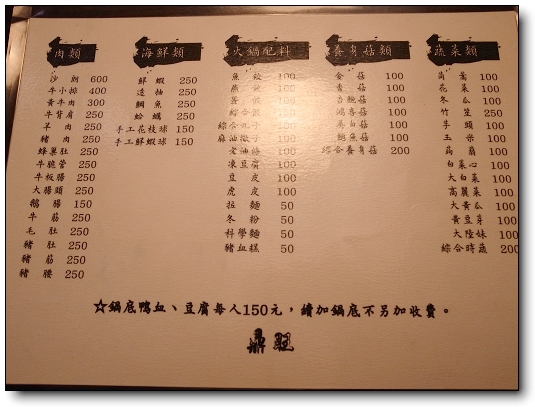 肉類
沙朗 600
牛小排 400
黃牛肉 300
牛背肩 250
羊肉 250
豬肉 250
蜂巢肚 250
牛脆管 250
牛板腸 250
大腸頭 250
鵝腸 150
牛筋 250
毛肚 250
豬肚 250
豬筋 250
豬腰 250
海鮮類
鮮蝦 250
透抽 250
鯛魚 250
蛤蠣 250
手工花枝球 150
手工鮮蝦球 150
火鍋配料
魚餃 100
燕餃 100
蛋餃 100
綜合餃 100
綜合丸子 100
麻油 100
油條 100
凍豆腐 100
豆皮 100
虎皮 100
拉麵 50
冬粉 50
科學麵 50
豬血糕 50
養身菇類
金菇 100
香菇 100
杏鮑菇 100
鴻喜菇 100
美白菇 100
鮑魚菇 100
綜合養身菇 200
蔬菜類
茼蒿 100
花菜 100
冬瓜 100
竹笙 250
芋頭 100
玉米 100
萵苣 100
白菜心 100
大白菜 100
高麗菜 100
大黃瓜 100
黃豆芽 100
大陸妹 100
綜合時蔬 200
☆鍋底鴨血、豆腐每人150元，續加鍋底不另加收費。
鼎旺